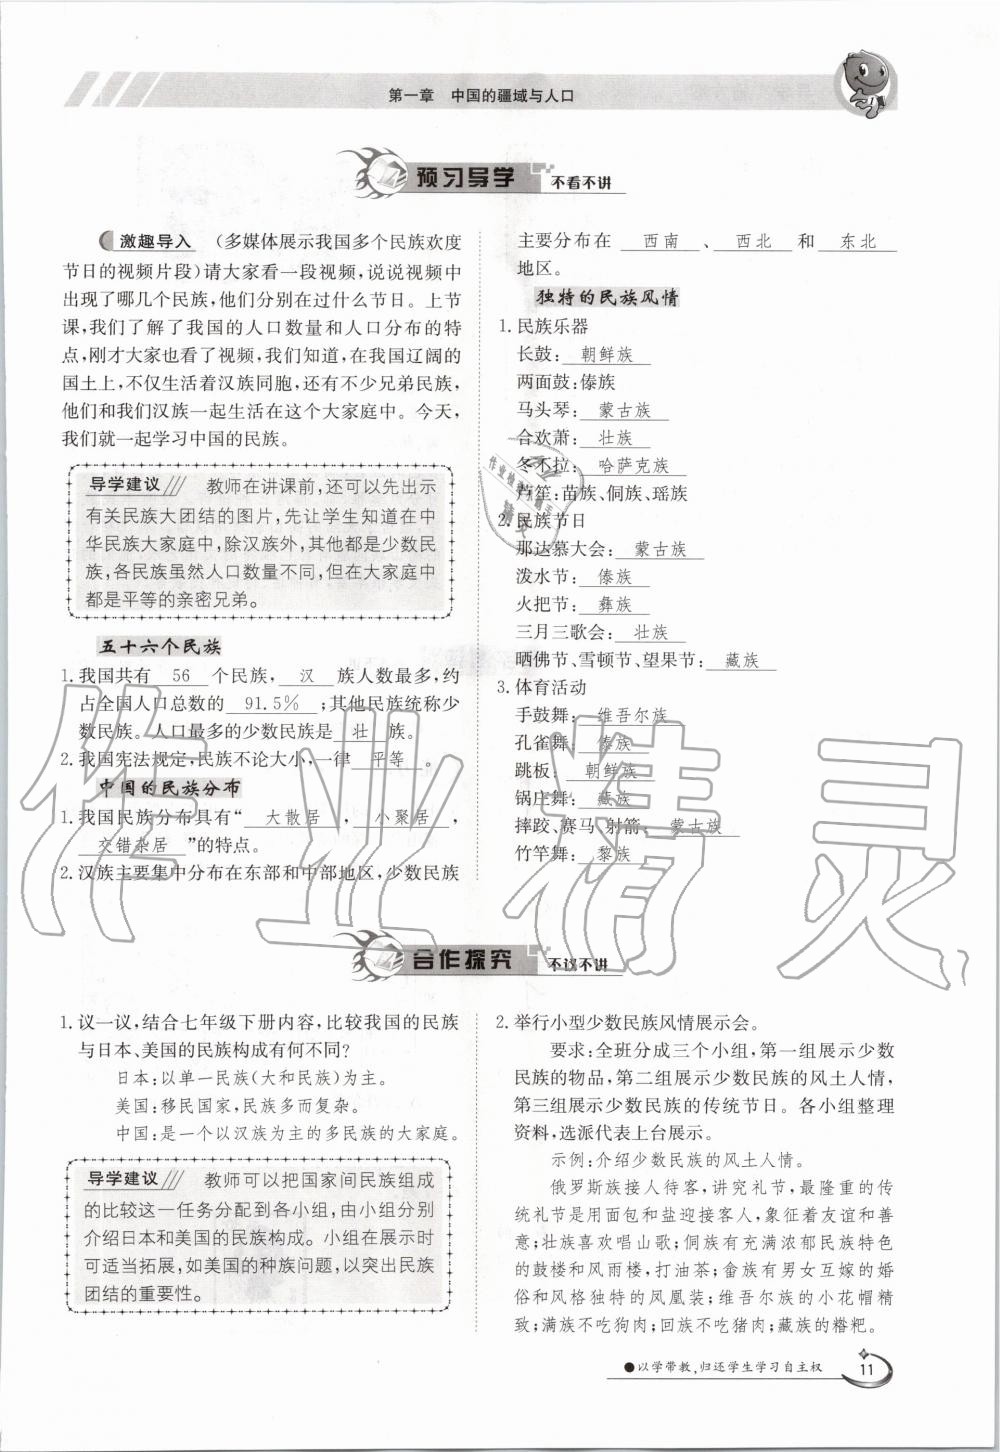 第一章 中国的疆域与人口
预习导学 不看不讲
激趣导入 (多媒体展示我国多个民族欢度
节日的视频片段)请大家看一段视频,说说视频中
出现了哪几个民族,他们分别在过什么节日。上节
课,我们了解了我国的人口数量和人口分布的特
点,刚才大家也看了视频,我们知道,在我国辽阔的
国土上,不仅生活着汉族同胞,还有不少兄弟民族,
他们和我们汉族一起生活在这个大家庭中。今天,
我们就一起学习中国的民族。
导学建议 教师在讲课前,还可以先出示
有关民族大团结的图片,先让学生知道在中
华民族大家庭中,除汉族外,其他都是少数民
族,各民族虽然人口数量不同,但在大家庭中
都是平等的亲密兄弟。
五十六个民族
1. 我国共有 56 个民族, 汉 族人数最多,约
占全国人口总数的 91.5% ;其他民族统称少
数民族。人口最多的少数民族是 壮 族。
2. 我国宪法规定,民族不论大小,一律 平等 。
中国的民族分布
1. 我国民族分布具有“ 大散居 , 小聚居 ,
交错杂居 ”的特点。
2. 汉族主要集中分布在东部和中部地区,少数民族
主要分布在 西南 、 西北 和 东北
地区。
独特的民族风情
1. 民族乐器
长鼓: 朝鲜族
两面鼓:傣族
马头琴: 蒙古族
合欢萧: 壮族
冬不拉: 哈萨克族
芦笙:苗族、侗族、瑶族
2. 民族节日
那达慕大会: 蒙古族
泼水节: 傣族
火把节: 彝族
三月三歌会: 壮族
晒佛节、雪顿节、望果节: 藏族
3. 体育活动
手鼓舞: 维吾尔族
孔雀舞: 傣族
跳板: 朝鲜族
锅庄舞: 藏族
摔跤、赛马、射箭: 蒙古族
竹竿舞: 黎族
合作探究 不议不讲
1. 议一议,结合七年级下册内容,比较我国的民族
与日本、美国的民族构成有何不同?
日本:以单一民族(大和民族)为主。
美国:移民国家,民族多而复杂。
中国:是一个以汉族为主的多民族的大家庭。
导学建议 教师可以把国家间民族组成
的比较这一任务分配到各小组,由小组分别
介绍日本和美国的民族构成。小组在展示时
可适当拓展,如美国的种族问题,以突出民族
团结的重要性。
2. 举行小型少数民族风情展示会。
要求:全班分成三个小组,第一组展示少数
民族的物品,第二组展示少数民族的风土人情,
第三组展示少数民族的传统节日。各小组整理
资料,选派代表上台展示。
示例:介绍少数民族的风土人情。
俄罗斯族接人待客,讲究礼节,最隆重的传
统礼节是用面包和盐迎接客人,象征着友谊和善
意;壮族喜欢唱山歌;侗族有充满浓郁民族特色
的鼓楼和风雨楼,打油茶;畲族有男女互嫁的婚
俗和风格独特的凤凰装;维吾尔族的小花帽精
致;满族不吃狗肉;回族不吃猪肉;藏族的糌粑。
●以学带教,归还学生学习自主权
11
作业精灵